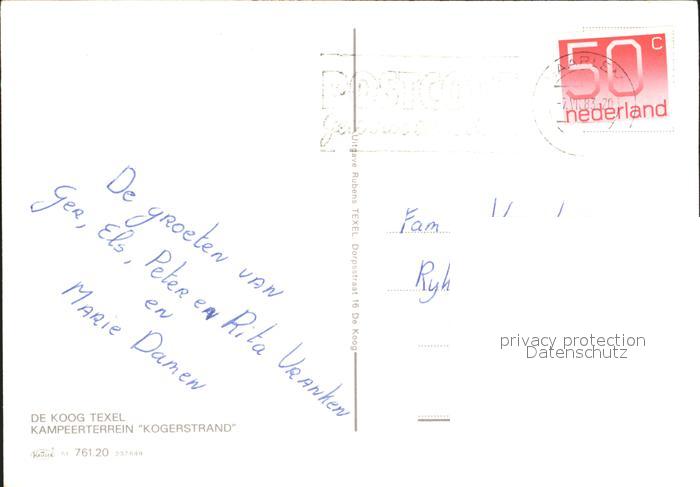 POSTCODE
50 c
nederland
AARLE
De groeten van
Ger, Els, Peter en Rita Vranken
en
Marie Damen
Uitgave Rubens TEXEL. Dorpsstraat 16 De Koog
Fam
Ryk
privacy protection
Datenschutz
DE KOOG TEXEL
KAMPEERTERREIN "KOGERSTRAND"
51 761.20